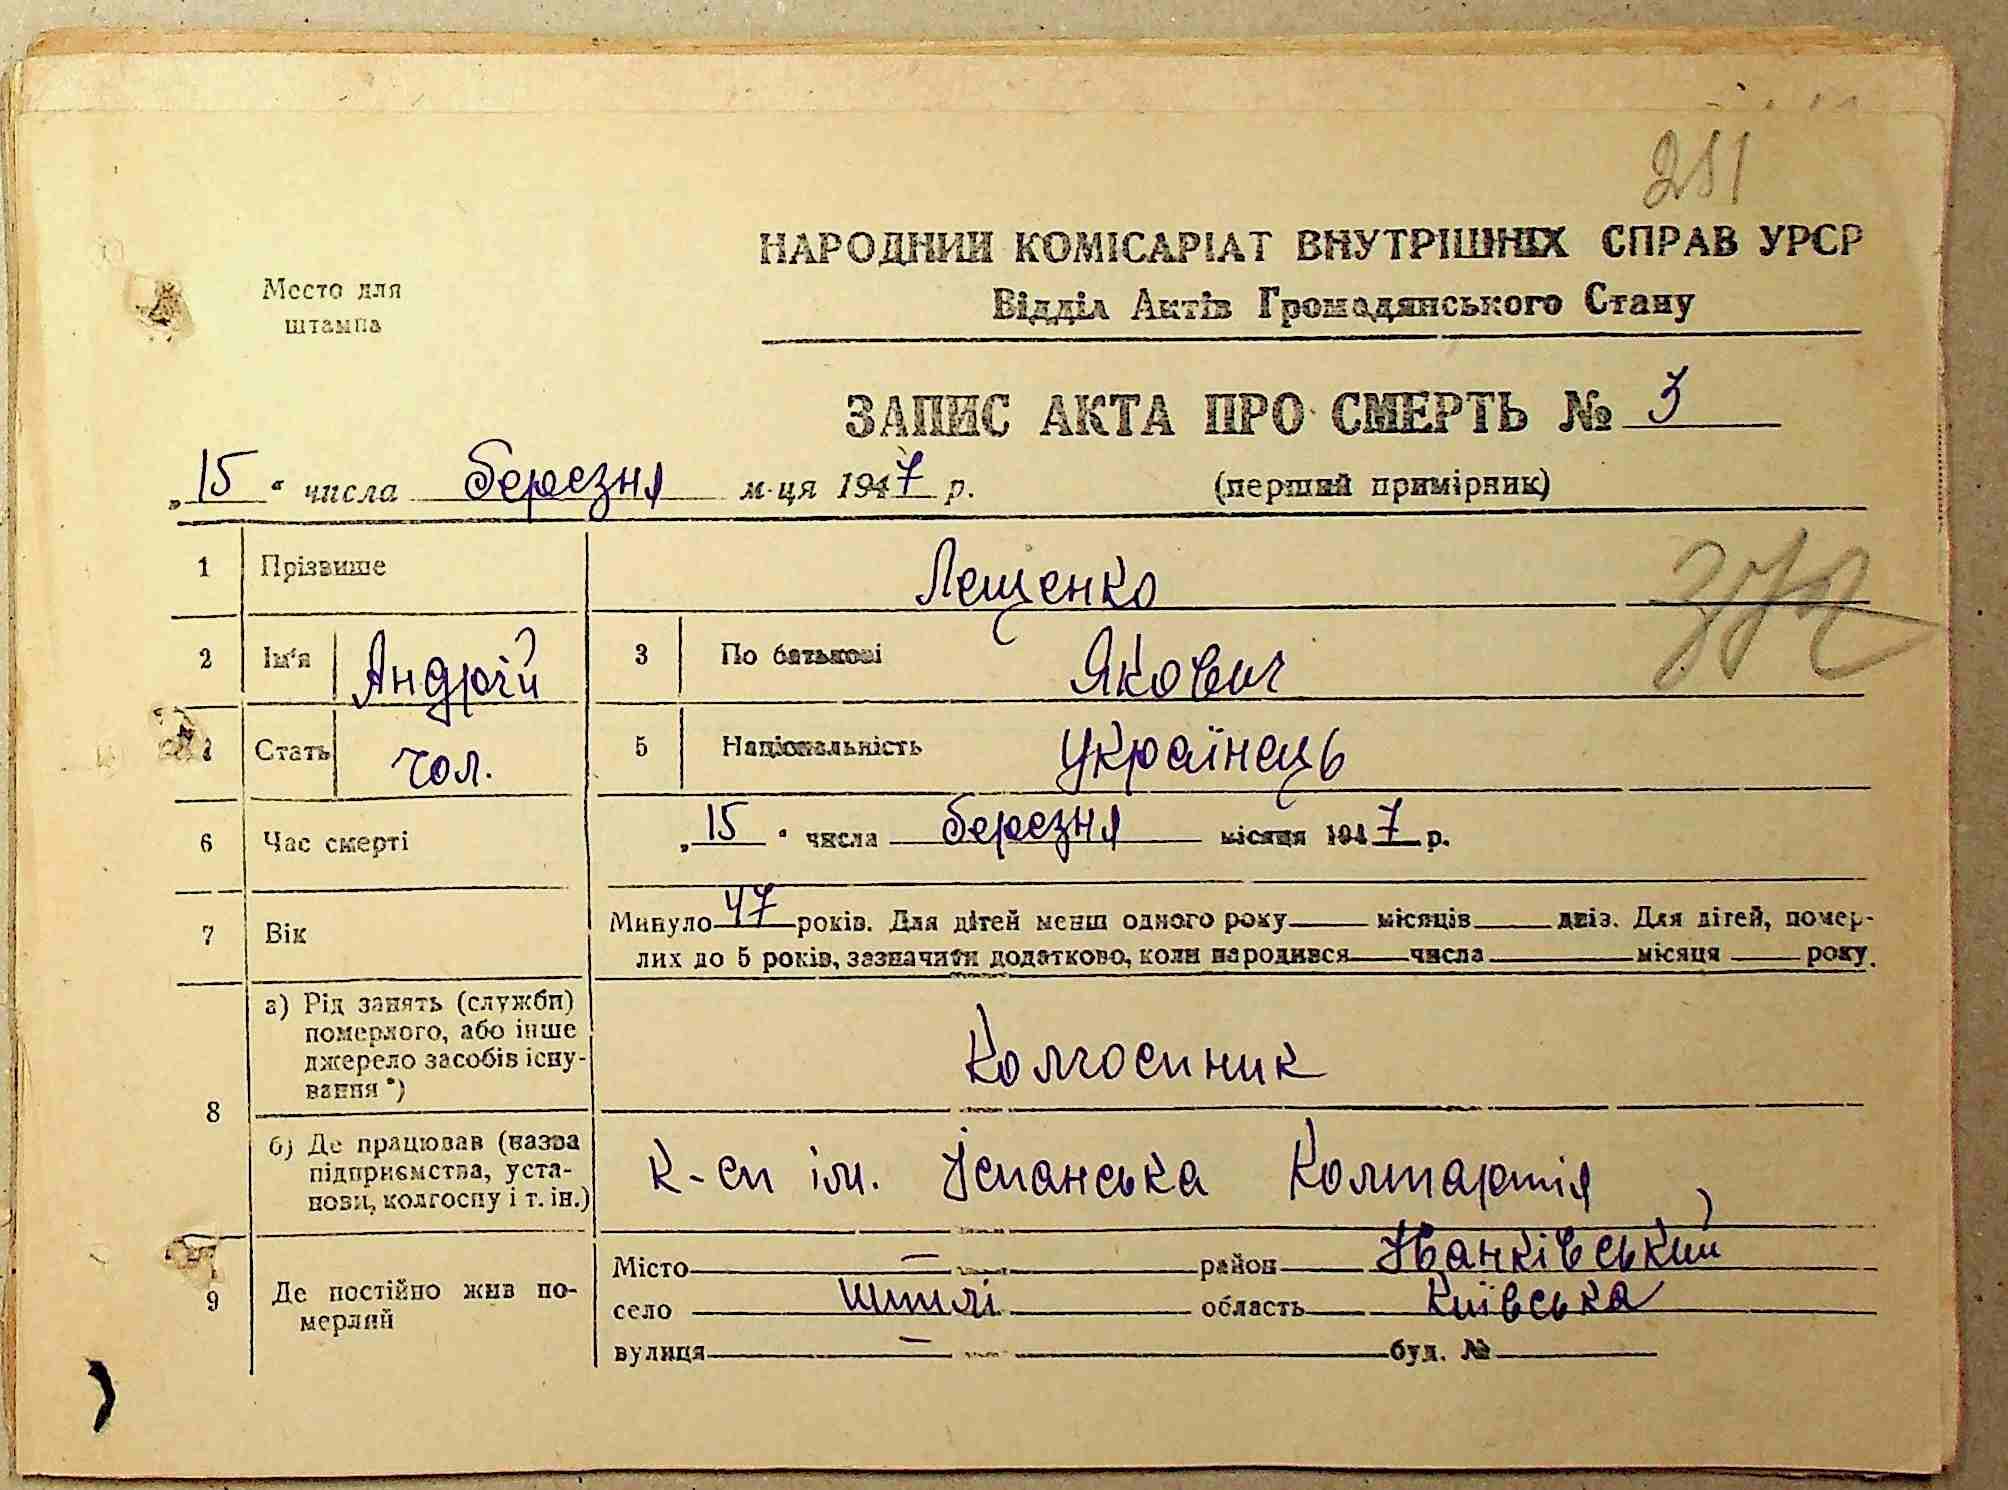 НАРОДНИЙ КОМІСАРІАТ ВНУТРІШНІХ СПРАВ УРСР
Відділ Актів Громадянського Стану
Место для
штампа
ЗАПИС АКТА ПРО СМЕРТЬ № 3
„15“ числа березня м-ця 1947 р. (перший примірник)
1 Прізвише Лещенко
2 Ім'я Андрій 3 По батькові Якович
4 Стать чол. 5 Національність українець
6 Час смерті „15“ числа березня місяця 1947 р.
7 Вік Минуло 47 років. Для дітей менш одного року місяців днів. Для дітей, помер-
лих до 5 років, зазначити додатково, коли народився числа місяця року.
8 а) Рід занять (служби)
померлого, або інше
джерело засобів існу-
вання*)
Колгоспник
б) Де працював (назва
підприємства, уста-
нови, колгоспу і т. ін.)
к-сп ім. Іспанська Компартія
9 Де постійно жив по-
мерлий
Місто — район Іванківський
село Шпилі область Київська
вулиця — буд. №